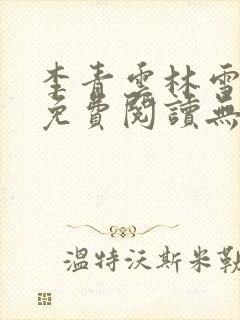 李青雲林雪
免費閱讀無
溫特沃斯米勒